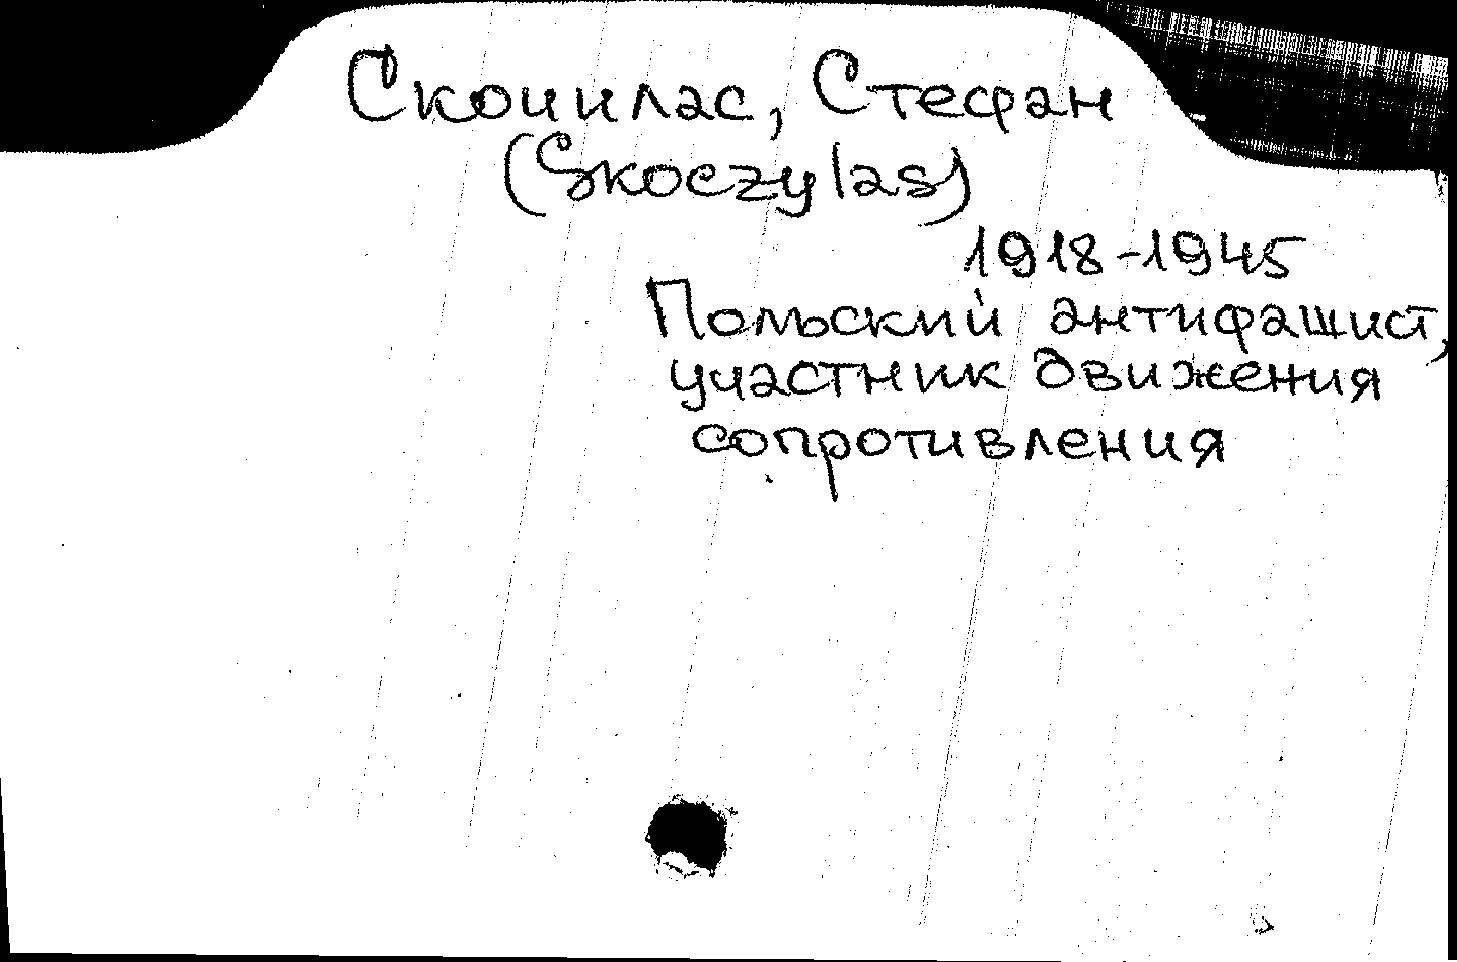 Скочилас, Стефан
(Skoczylas)
1918-1945
Польский антифашист,
участник движения
сопротивления